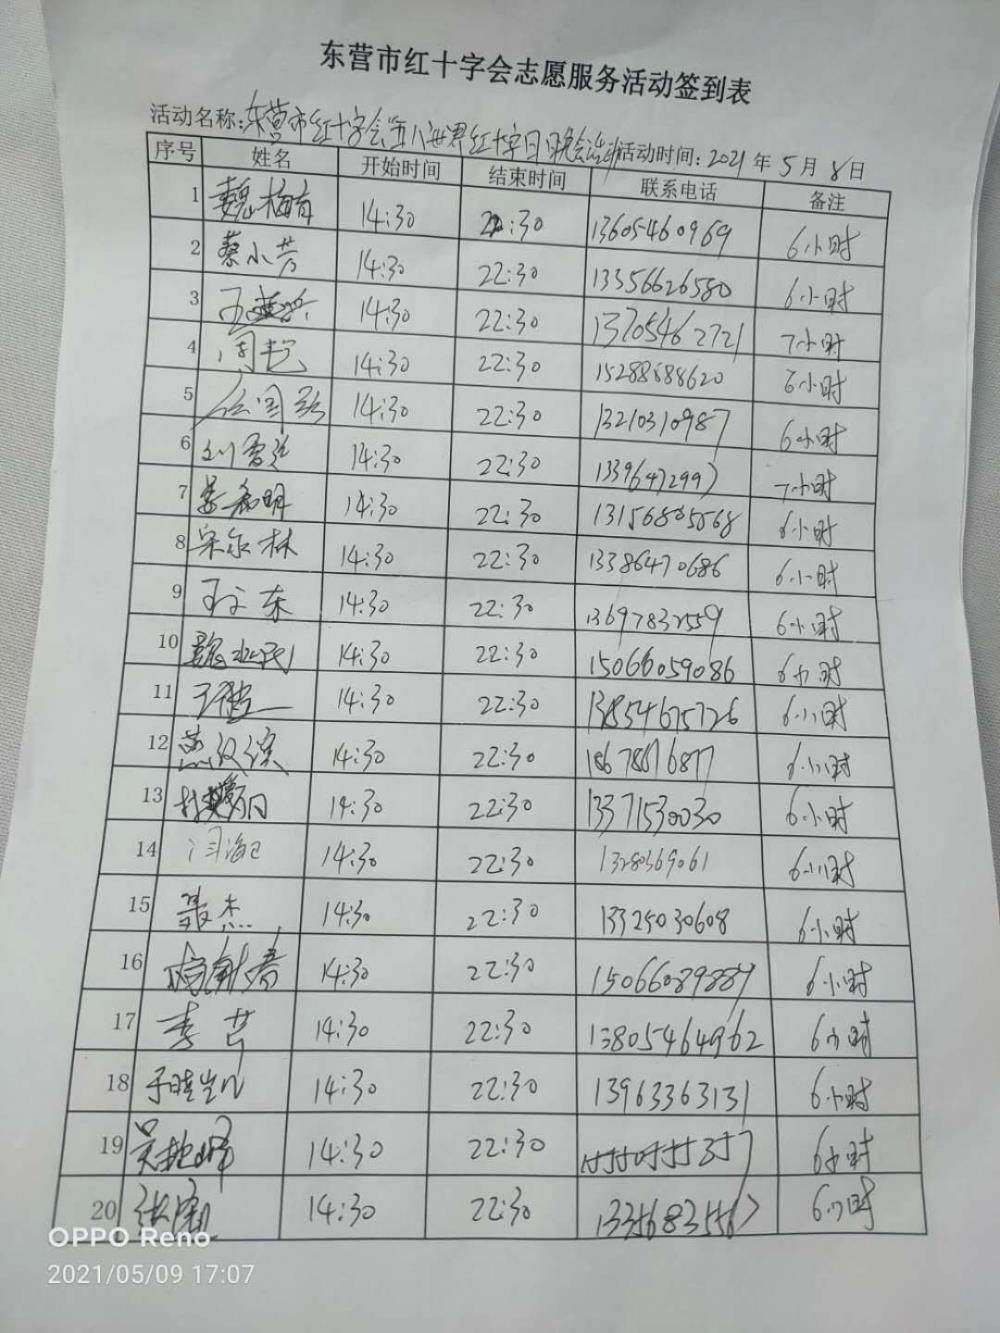 东营市红十字会志愿服务活动签到表
活动名称:东营市红十字会"五八世界红十字日"晚会活动 活动时间: 2021 年 5 月 8 日
序号 姓名 开始时间 结束时间 联系电话 备注
1 魏梅育 14:30 22:30 13605460969 6小时
2 蔡小芳 14:30 22:30 13356626580 6小时
3 14:30 22:30 13705462721 7小时
4 周艳 14:30 22:30 15288888620 6小时
5 14:30 22:30 13210310987 6小时
6 14:30 22:30 13396472997 7小时
7 14:30 22:30 13156805568 6小时
8 宋尔林 14:30 22:30 13386470686 6小时
9 孙东 14:30 22:30 13697832559 6小时
10 14:30 22:30 15066059086 6小时
11 14:30 22:30 13854675726 6小时
12 14:30 22:30 18678676877 6小时
13 14:30 22:30 13371530030 6小时
14 闫海 14:30 22:30 13280369061 6小时
15 聂杰 14:30 22:30 13325030608 6小时
16 14:30 22:30 15066089889 6小时
17 李芸 14:30 22:30 13805464962 6小时
18 于晴 14:30 22:30 13963363131 6小时
19 吴艳峰 14:30 22:30 6小时
20 14:30 22:30 13356835567 6小时
OPPO Reno
2021/05/09 17:07